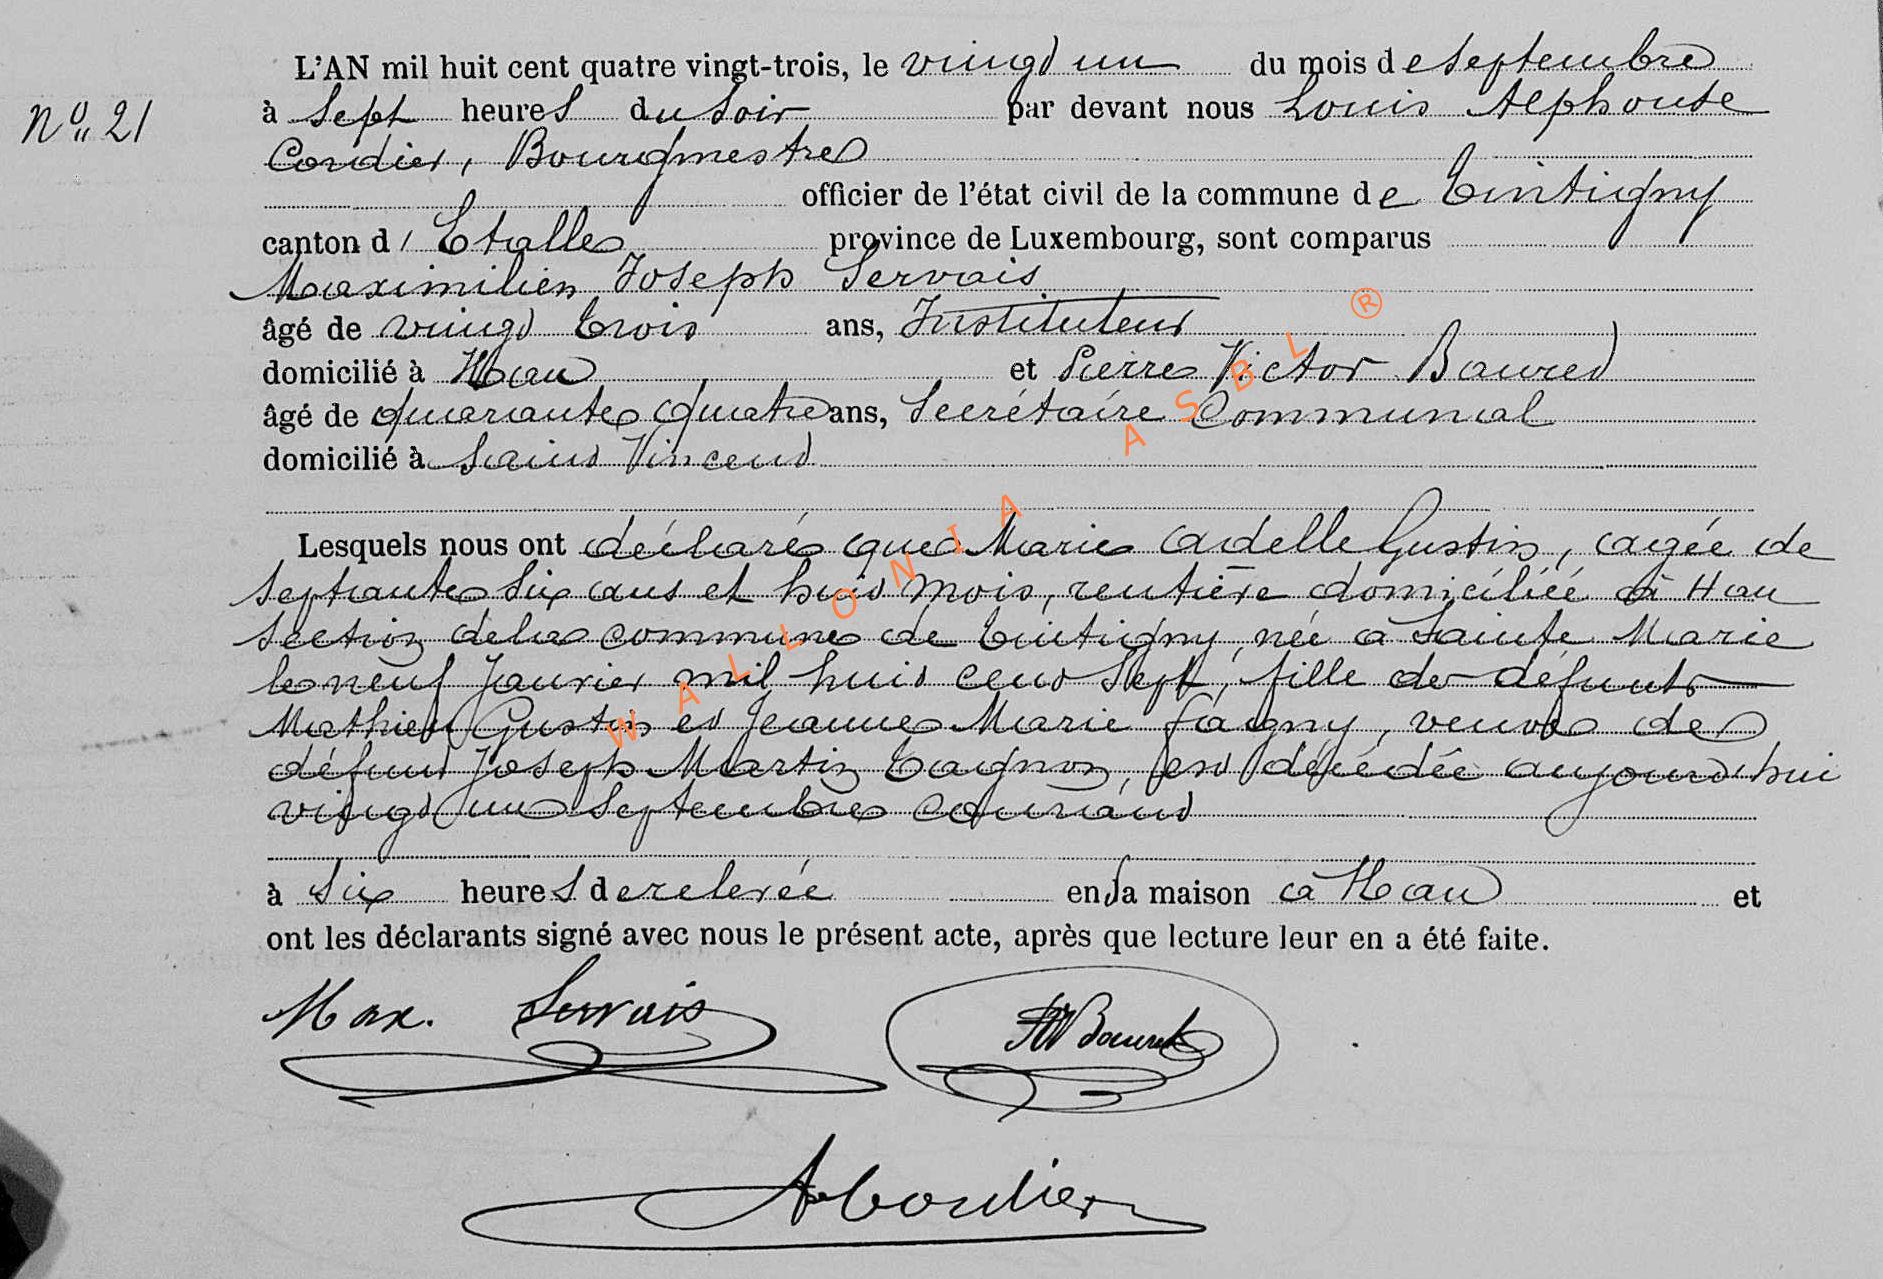 L'AN mil huit cent quatre vingt-trois, le vingt un du mois de Septembre
No. 21
à Sept heures du Soir par devant nous Louis Alphonse
Cordier, Bourgmestre
officier de l'état civil de la commune de Tintigny
canton d'Etalle province de Luxembourg, sont comparus
Maximilien Joseph Servais
âgé de vingt trois ans, Instituteur
domicilié à Han et Pierre Victor Bauret
âgé de quarante quatre ans, Secrétaire Communal
domicilié à Saint Vincent
Lesquels nous ont déclaré que Marie Adelle Gustin, agée de
Septante Six ans et huit mois, rentière domiciliée à Han
Section de la commune de Tintigny, née à Sainte Marie
le neuf Janvier mil huit cent Sept, fille de défunts
Mathieu Gustin et Jeanne Marie Fagny, veuve de
défunt Joseph Martin Tagnon, est décédée aujourd'hui
vingt un Septembre courant
à Six heures de relevée en sa maison à Han et
ont les déclarants signé avec nous le présent acte, après que lecture leur en a été faite.
Max. Servais
PV Bauret
A Cordier
WALLONIA ASBL ®